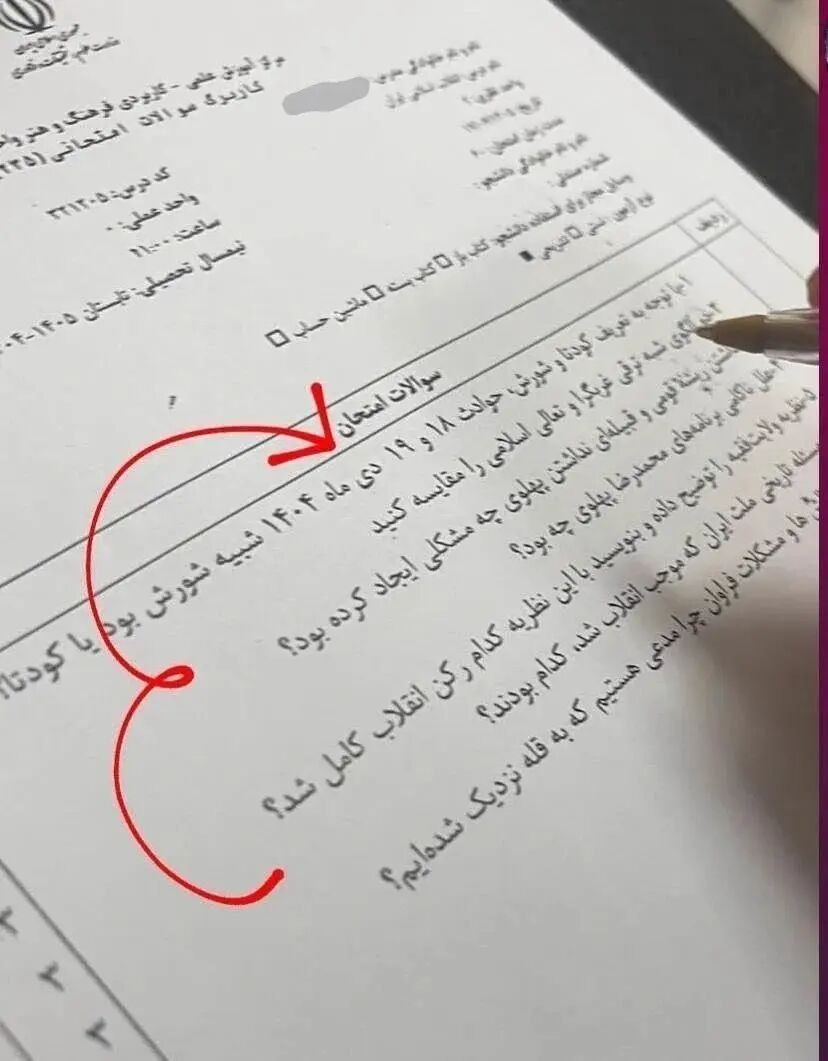 مرکز آموزش علمی - کاربردی فرهنگ و هنر
کاربرگ سوالات امتحانی
نام درس: انقلاب اسلامی ایران
کد درس: ۳۳۱۲۰۵
واحد عملی: ۰
ساعت: ۲۱:۰۰
نیمسال تحصیلی: تابستان ۱۴۰۵-
نام و نام خانوادگی دانشجو:
شماره صندلی:
وسایل مجاز برای استفاده دانشجو: کتاب باز □ کتاب بسته □ ماشین حساب □
نوع آزمون: تستی □ تشریحی ■
ردیف
سوالات امتحان
۱ با توجه به تعریف کودتا و شورش، حوادث ۱۸ و ۱۹ دی ماه ۱۴۰۴ شبیه شورش بود یا کودتا؟
الگوی شبه ترقی غربگرا و تعالی اسلامی را مقایسه کنید
ریشهٔ قومی و قبیله‌ای نداشتن پهلوی چه مشکلی ایجاد کرده بود؟
علل ناکامی برنامه‌های محمدرضا پهلوی چه بود؟
۵ نظریه ولایت‌فقیه را توضیح داده و بنویسید با این نظریه کدام رکن انقلاب کامل شد؟
تاریخی ملت ایران که موجب انقلاب شد، کدام بودند؟
ها و مشکلات فراوان چرا مدعی هستیم که به قله نزدیک شده‌ایم؟
۳
۳
۲